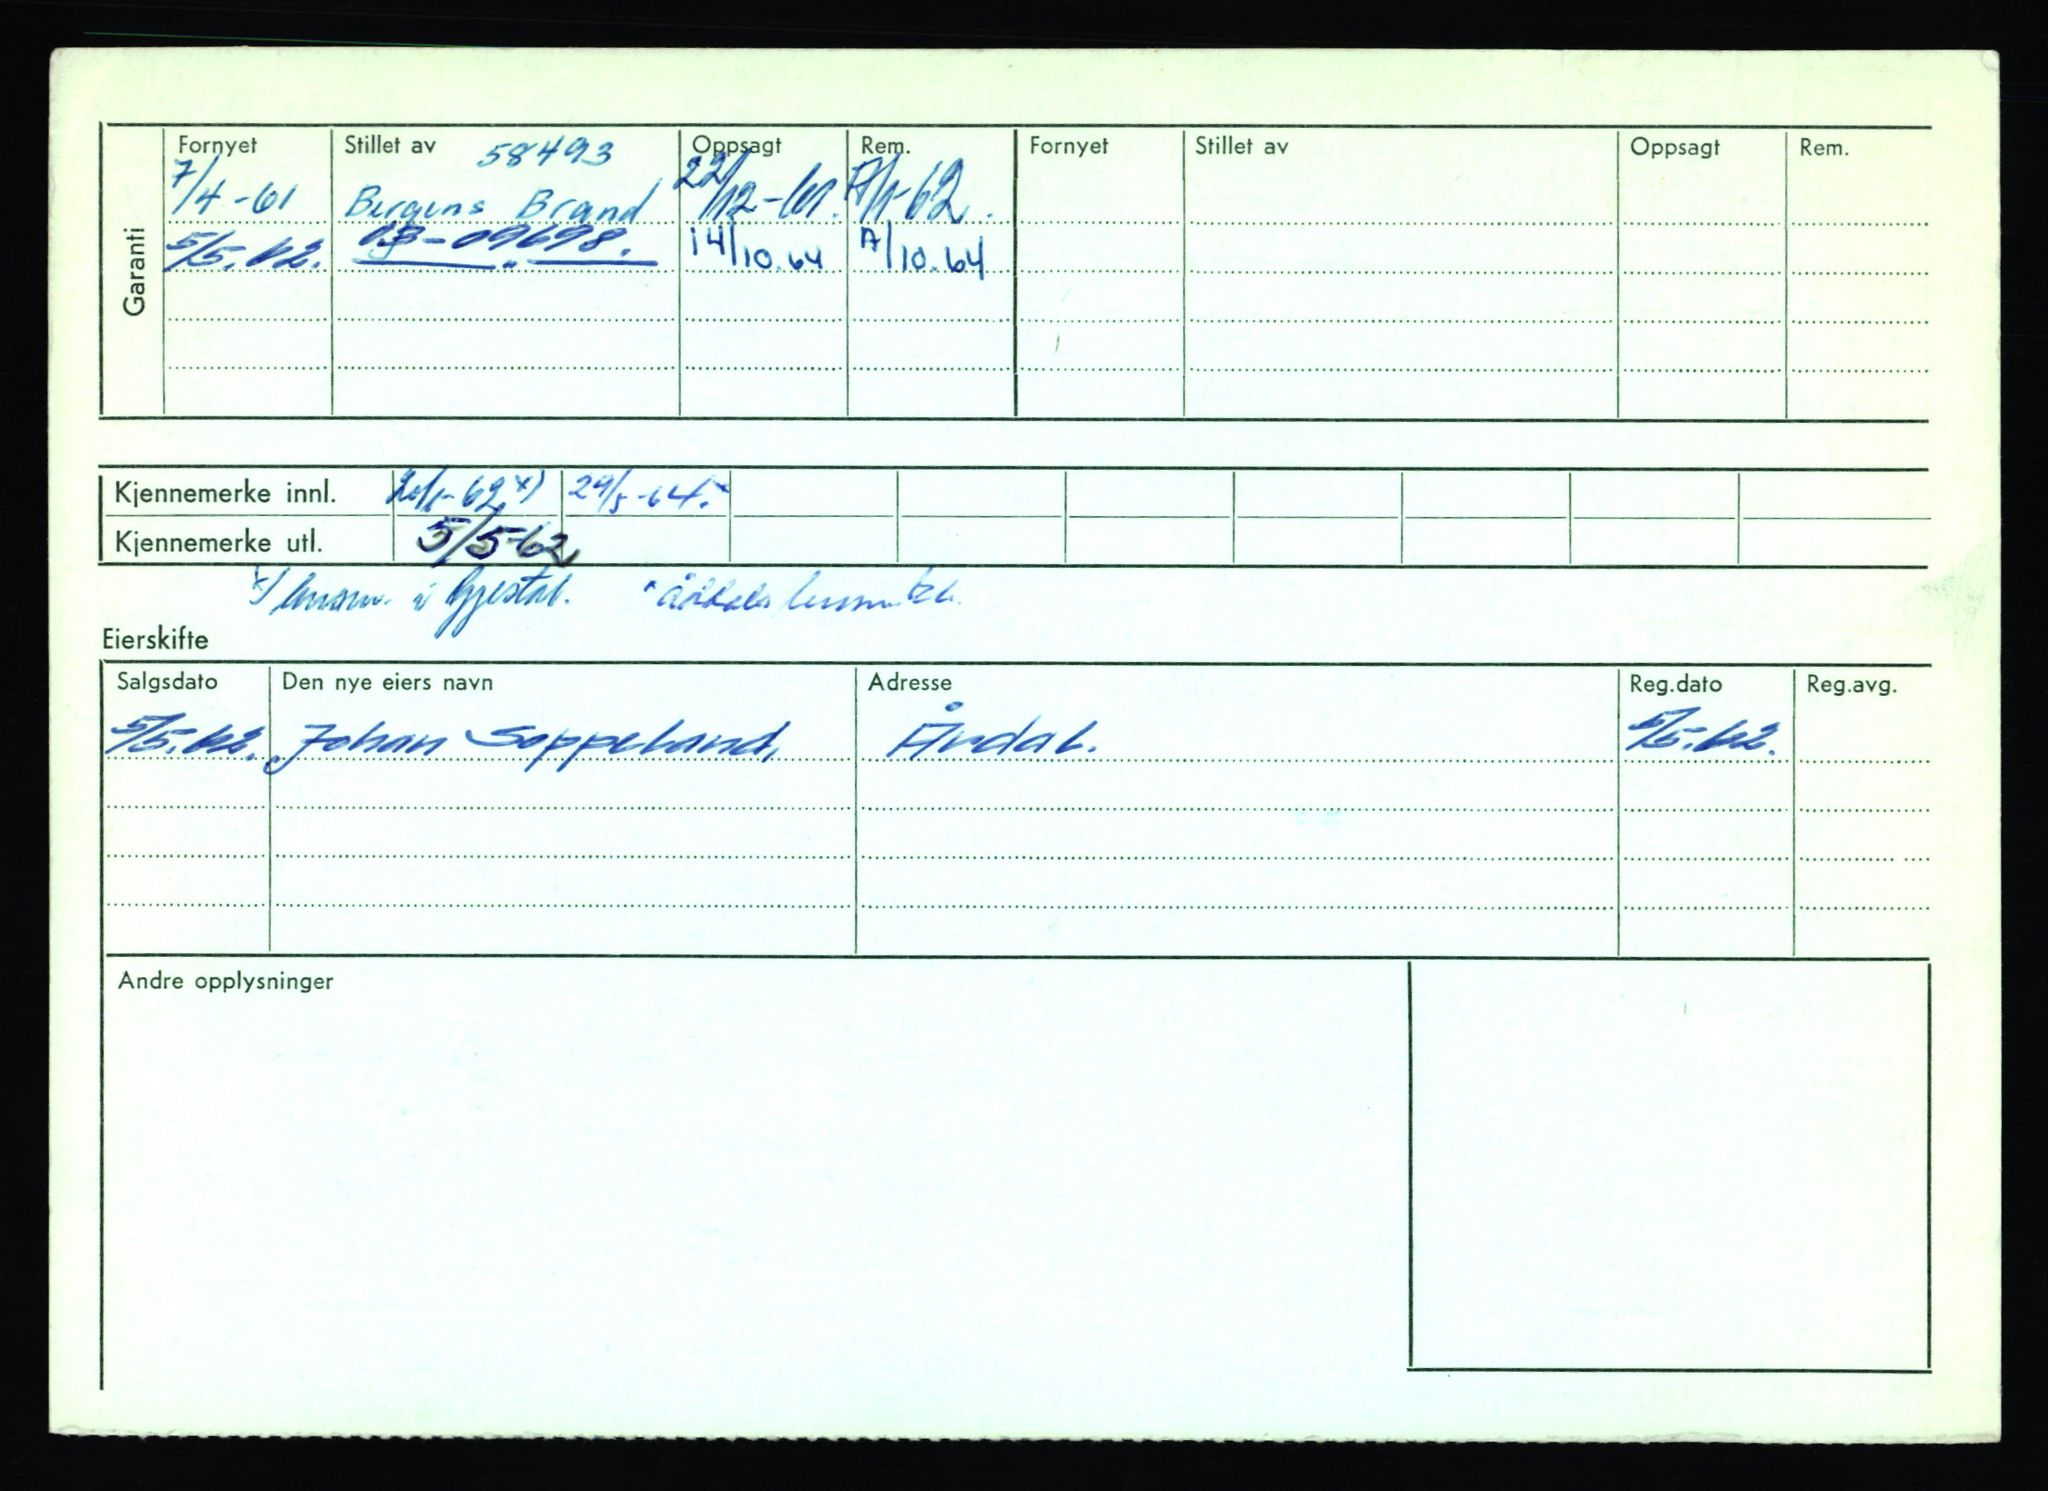 Garanti
Fornyet Stillet av 58493 Oppsagt Rem. Fornyet Stillet av Oppsagt Rem.
7/4-61 Bergens Brand 22/12-61. A/1-62.
5/5.62. 03-09698. 14/10.64 A/10.64
Kjennemerke innl. 20/1-62 x) 29/5-64. x
Kjennemerke utl. 5/5-62
x) i Gjestal.
Eierskifte
Salgsdato Den nye eiers navn Adresse Reg.dato Reg.avg.
5/5.62. Johan Soppeland, Årdal. 5/5.62.
Andre opplysninger